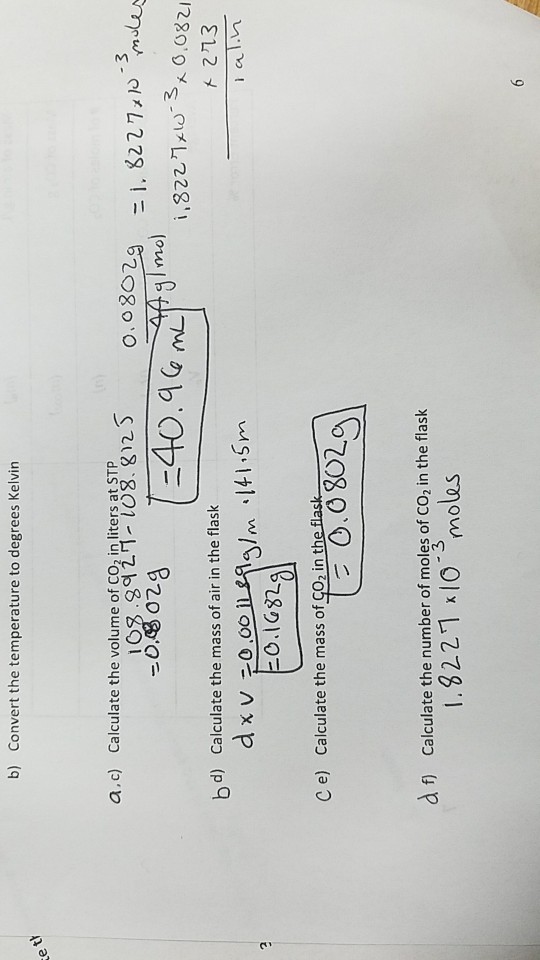 b) Convert the temperature to degrees Kelvin
a.c) Calculate the volume of CO₂ in liters at STP
108.8927-108.8125
=0.0802g
0.0802g
44g/mol
=1.8227x10⁻³ moles
=40.96 mL
1.8227x10⁻³ x 0.0821
x 273
b d) Calculate the mass of air in the flask
d x v = 0.001189g/m . 141.5m
=0.1682g
C e) Calculate the mass of CO₂ in the flask
= 0.0802g
d f) Calculate the number of moles of CO₂ in the flask
1.8227 x 10⁻³ moles
6